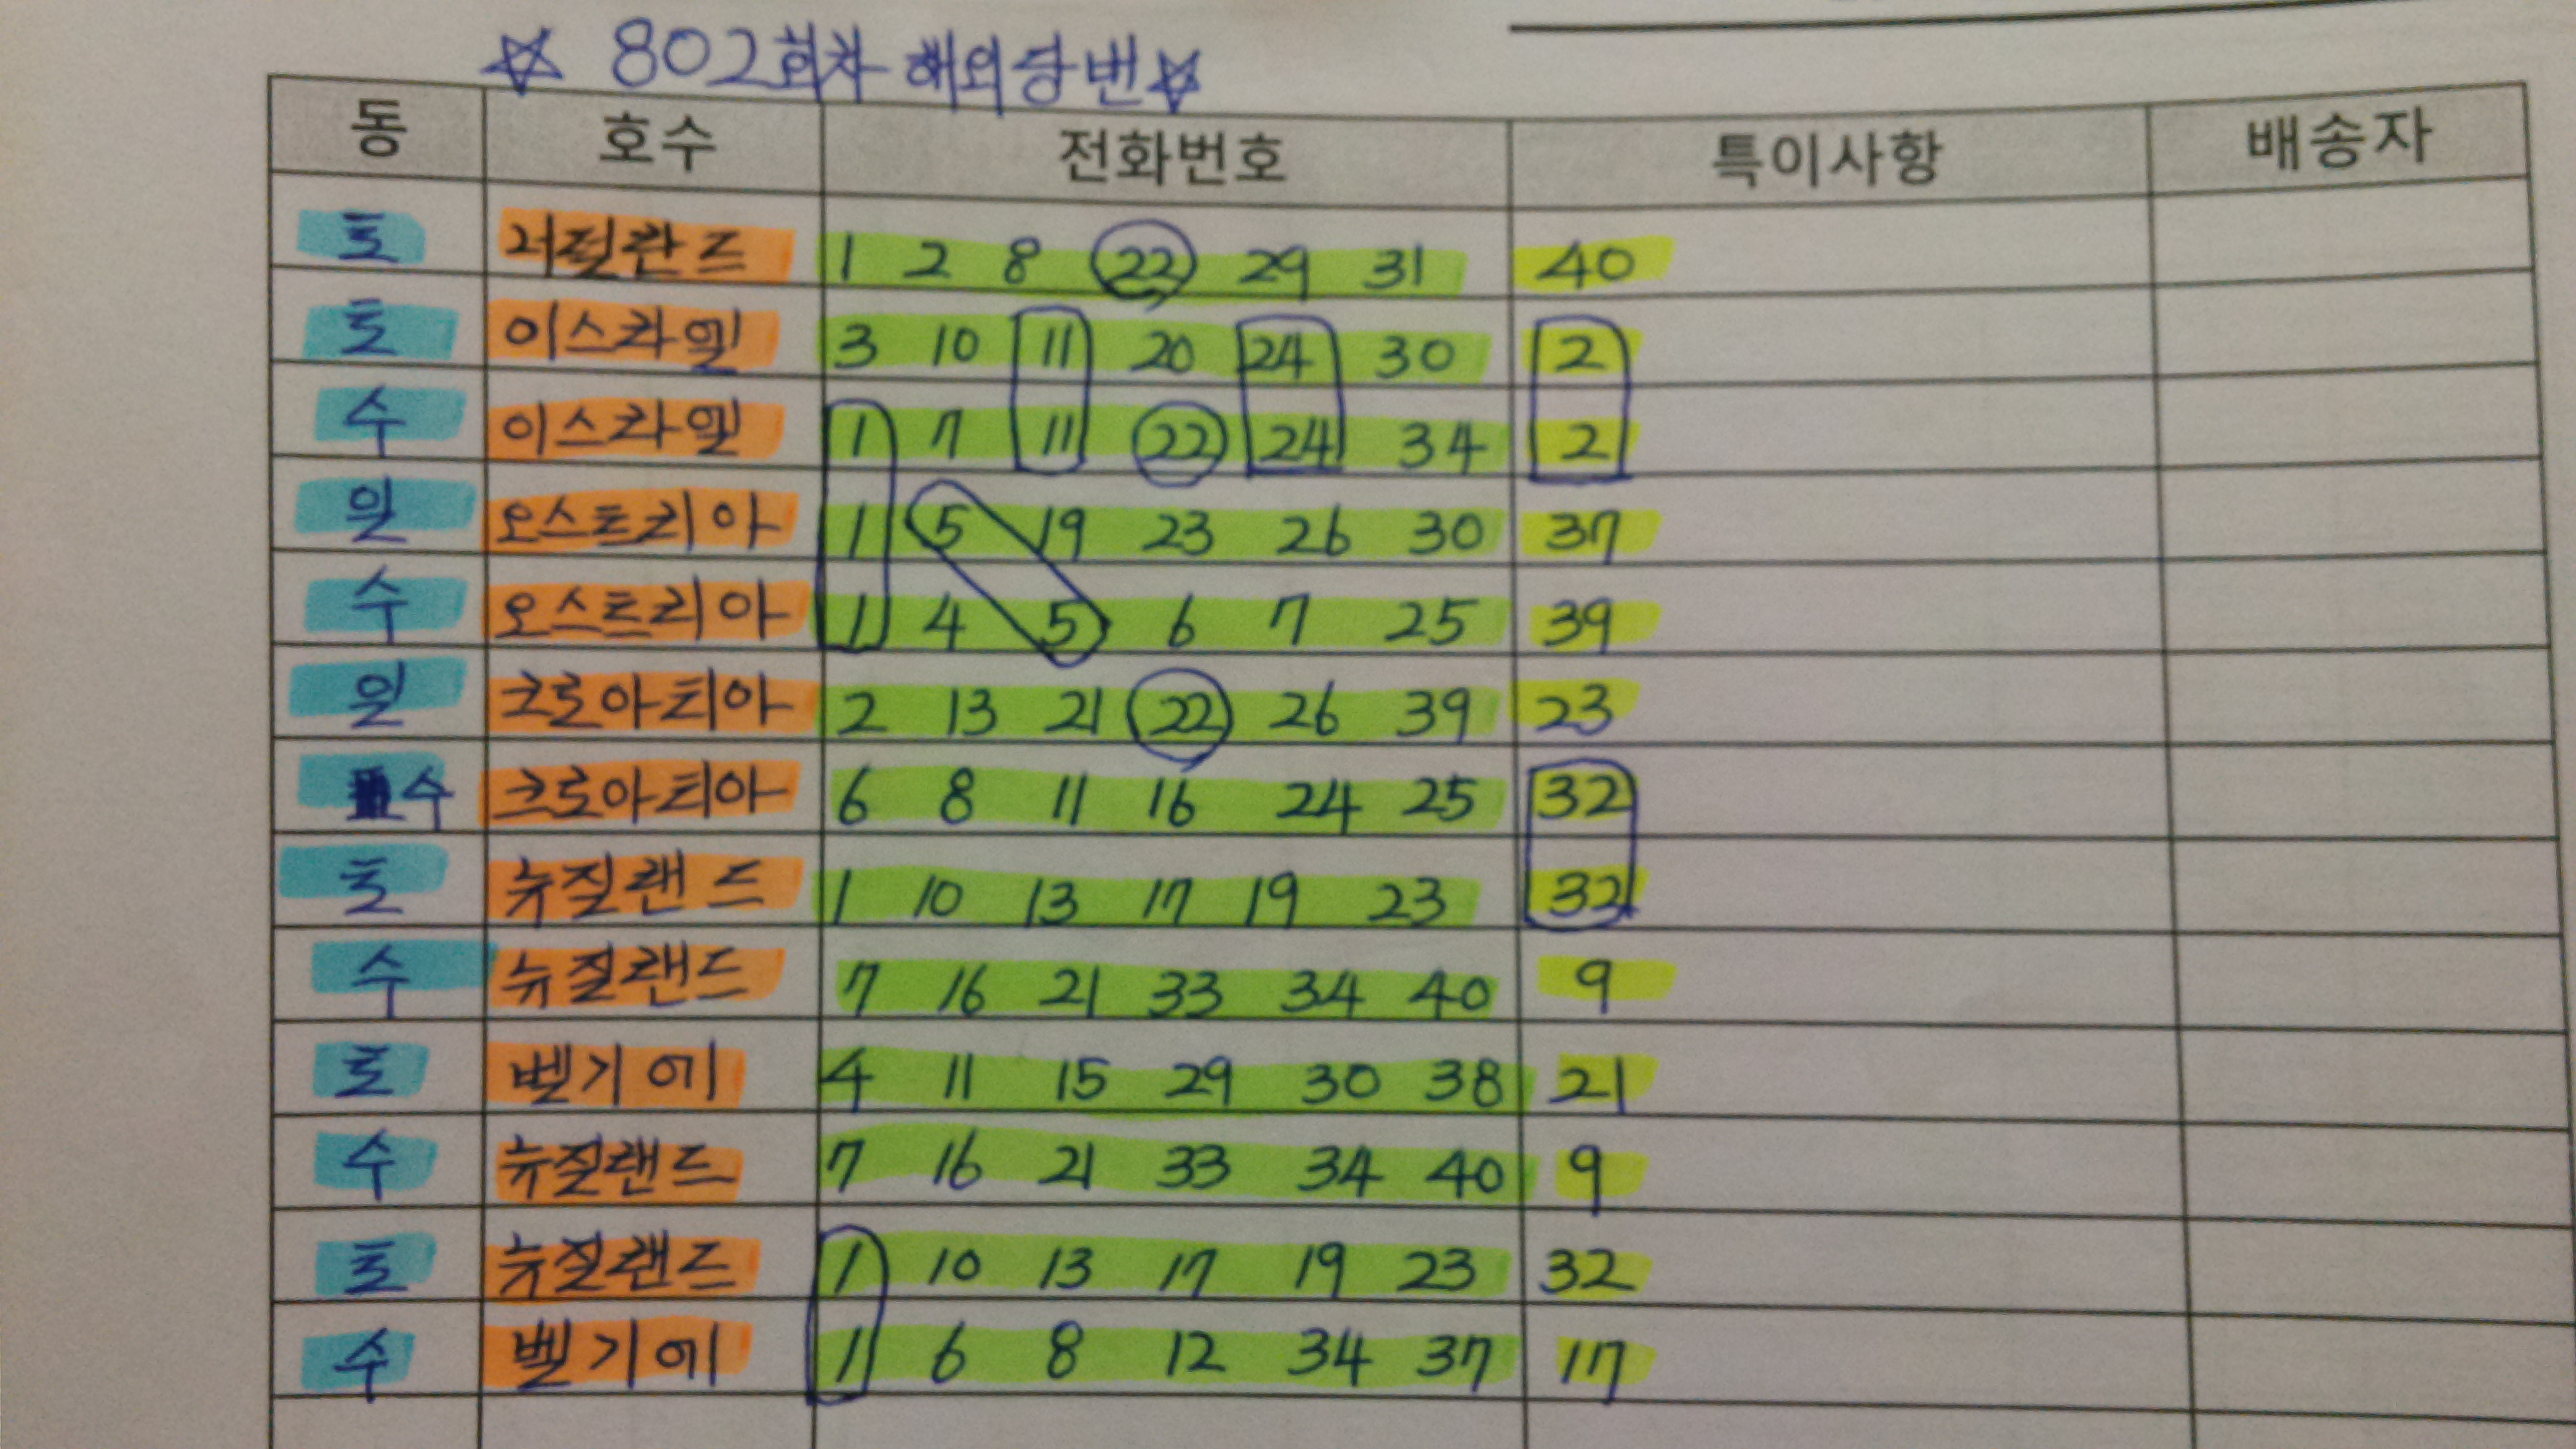 ☆ 802회차 해외당번☆
동 호수 전화번호 특이사항 배송자
토 1 2 8 22 29 31 40
토 이스라엘 3 10 11 20 24 30 2
수 이스라엘 1 7 11 22 24 34 2
일 오스트리아 1 5 19 23 26 30 37
수 오스트리아 1 4 5 6 7 25 39
일 크로아티아 2 13 21 22 26 39 23
수 크로아티아 6 8 11 16 24 25 32
토 뉴질랜드 1 10 13 17 19 23 32
수 뉴질랜드 7 16 21 33 34 40 9
토 벨기에 4 11 15 29 30 38 21
수 뉴질랜드 7 16 21 33 34 40 9
토 뉴질랜드 1 10 13 17 19 23 32
수 벨기에 1 6 8 12 34 37 17